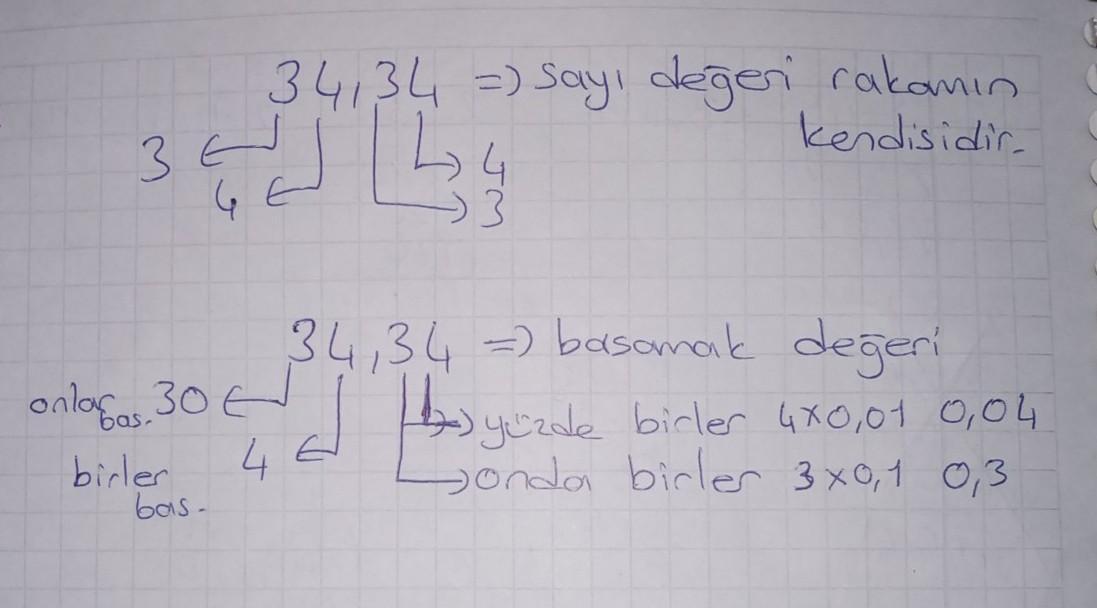 34,34 => Sayı değeri rakamın
kendisidir.
3
4
4
3
34,34 => basamak değeri
onlar bas. 30
yüzde birler 4x0,01 0,04
birler bas. 4
onda birler 3x0,1 0,3